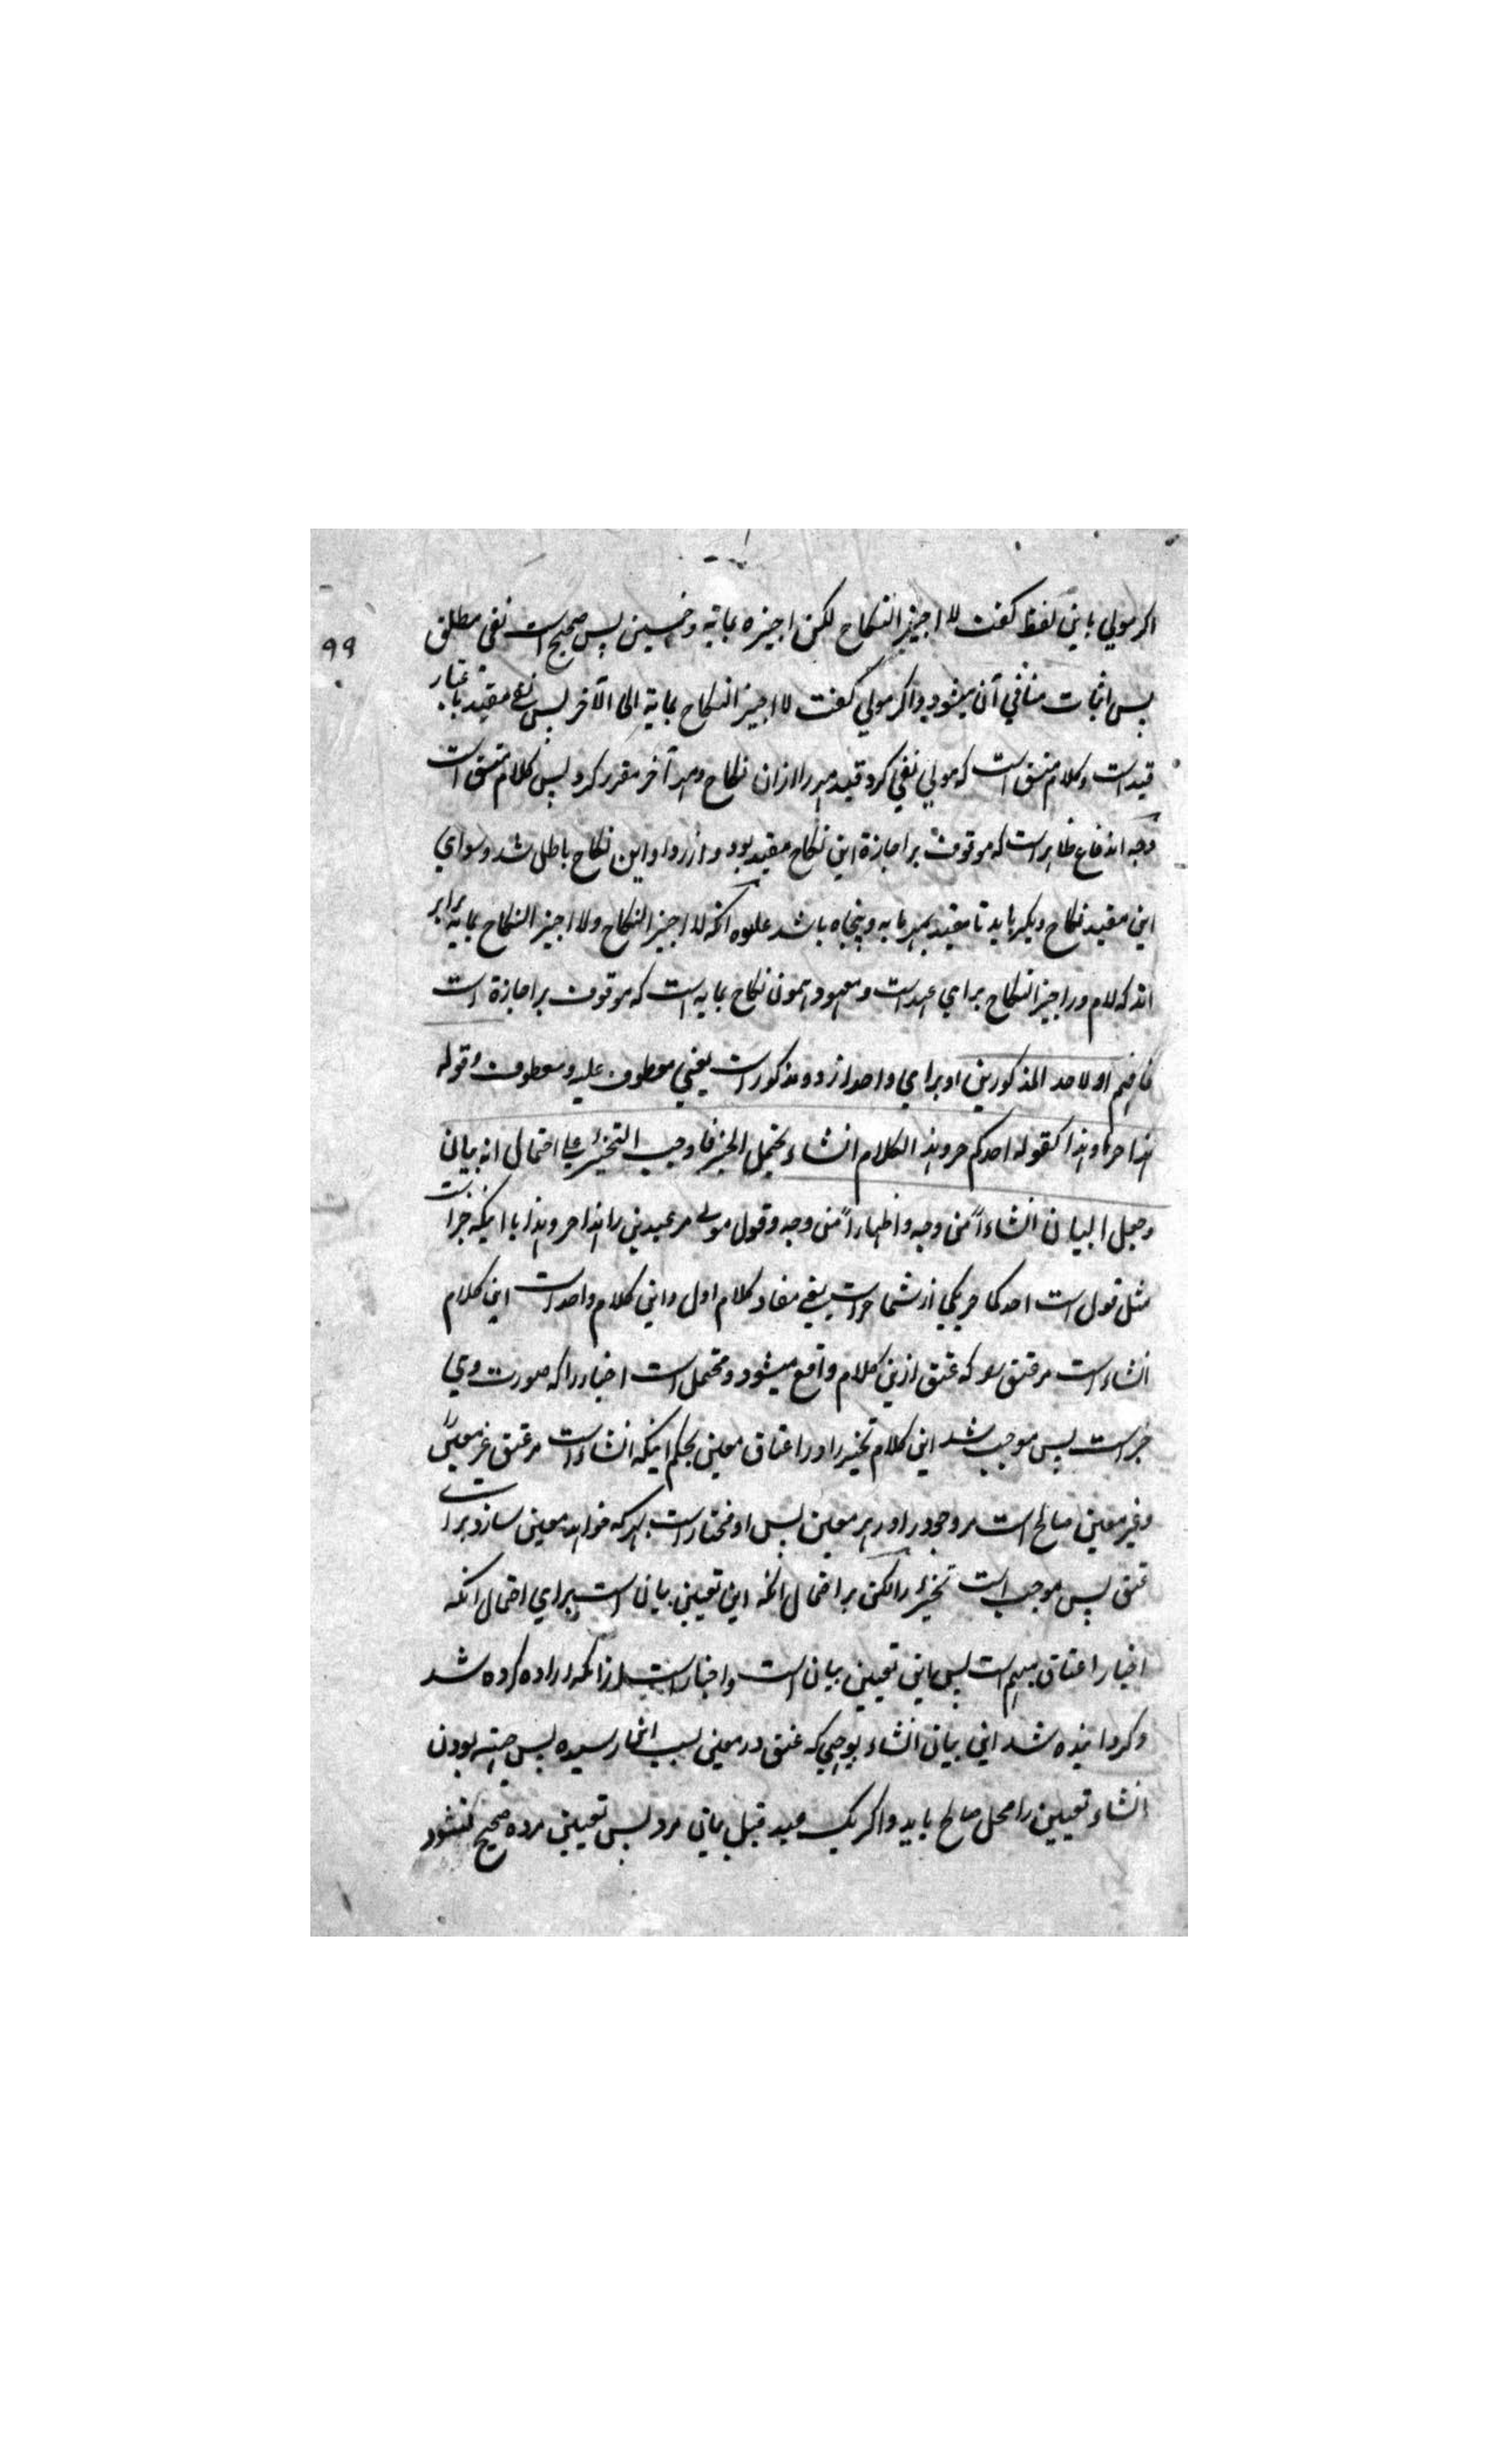 اکر مولي باین لفظ کفت لا اجیز النکاح لکن اجیزه بمایة وخمسین پس صحیح است نفی مطلق
۹۹
پس اثبات منافي آن میشود واکر مولي کفت لا اجیز النکاح بمایة الی الآخر پس نفی مقید باعتبار
قید است وکلام متسق است که مولي نفي کرد قید مهر را ازان نکاح ومهر آخر مقرر کرد پس کلام متسق است
وجه اندفاع ظاهر است که موقوف بر اجازة این نکاح مقید بود واز رد او این نکاح باطل شد وسواي
این مقید نکاح دیکر باید تا مقید بمهر مایه وپنجاه باشد علاوه انکه لا اجیز النکاح ولا اجیز النکاح بمایه برابر
اند که لام در اجیز النکاح براي عهد است ومعهود همون نکاح بمایه است که موقوف بر اجازة است
فافهم او لاحد المذکورین او براي واحد از دو مذکور است یعني معطوف علیه ومعطوف وقوله
هذا حر او هذا کقوله احدکم حر وهذا الکلام انشاء یحتمل الخبر فاوجب التخییر علي احتمال انه بیان
وجعل البیان انشاءاً من وجه واظهاراً من وجه وقول مولے مر عبدین را هذا حر وهذا با اینکه جزا
مثل قول است احدکما حر یکي از شما حر است یعنے مفاد کلام اول واین کلام واحد است این کلام
انشاء است مر عتق را که عتق ازین کلام واقع میشود ومحتمل است اخبار را که صورت وي
خبر است پس موجب شد این کلام تخییر را در اعتاق معین بحکم اینکه انشاء است مر عتق غیر معین را
وغیر معین صالح است مر وجود را در هر معین پس او مختار است هر که خواهد معین سازد براے
عتق پس موجب است تخییر را لکن بر احتمال انکه این تعیین بیان است براي احتمال انکه
اخبار اعتاق مبهم است پس این تعیین بیان است واخبار است از انکه اراده کرده شد
وکردانیده شد این بیان انشاء بوجهي که عتق در معین بسبب رسیده پس بودن
انشاء تعیین را محل صالح باید واکر یک عبد قبل بیان مرد پس تعیین مرده صحیح نمیشود